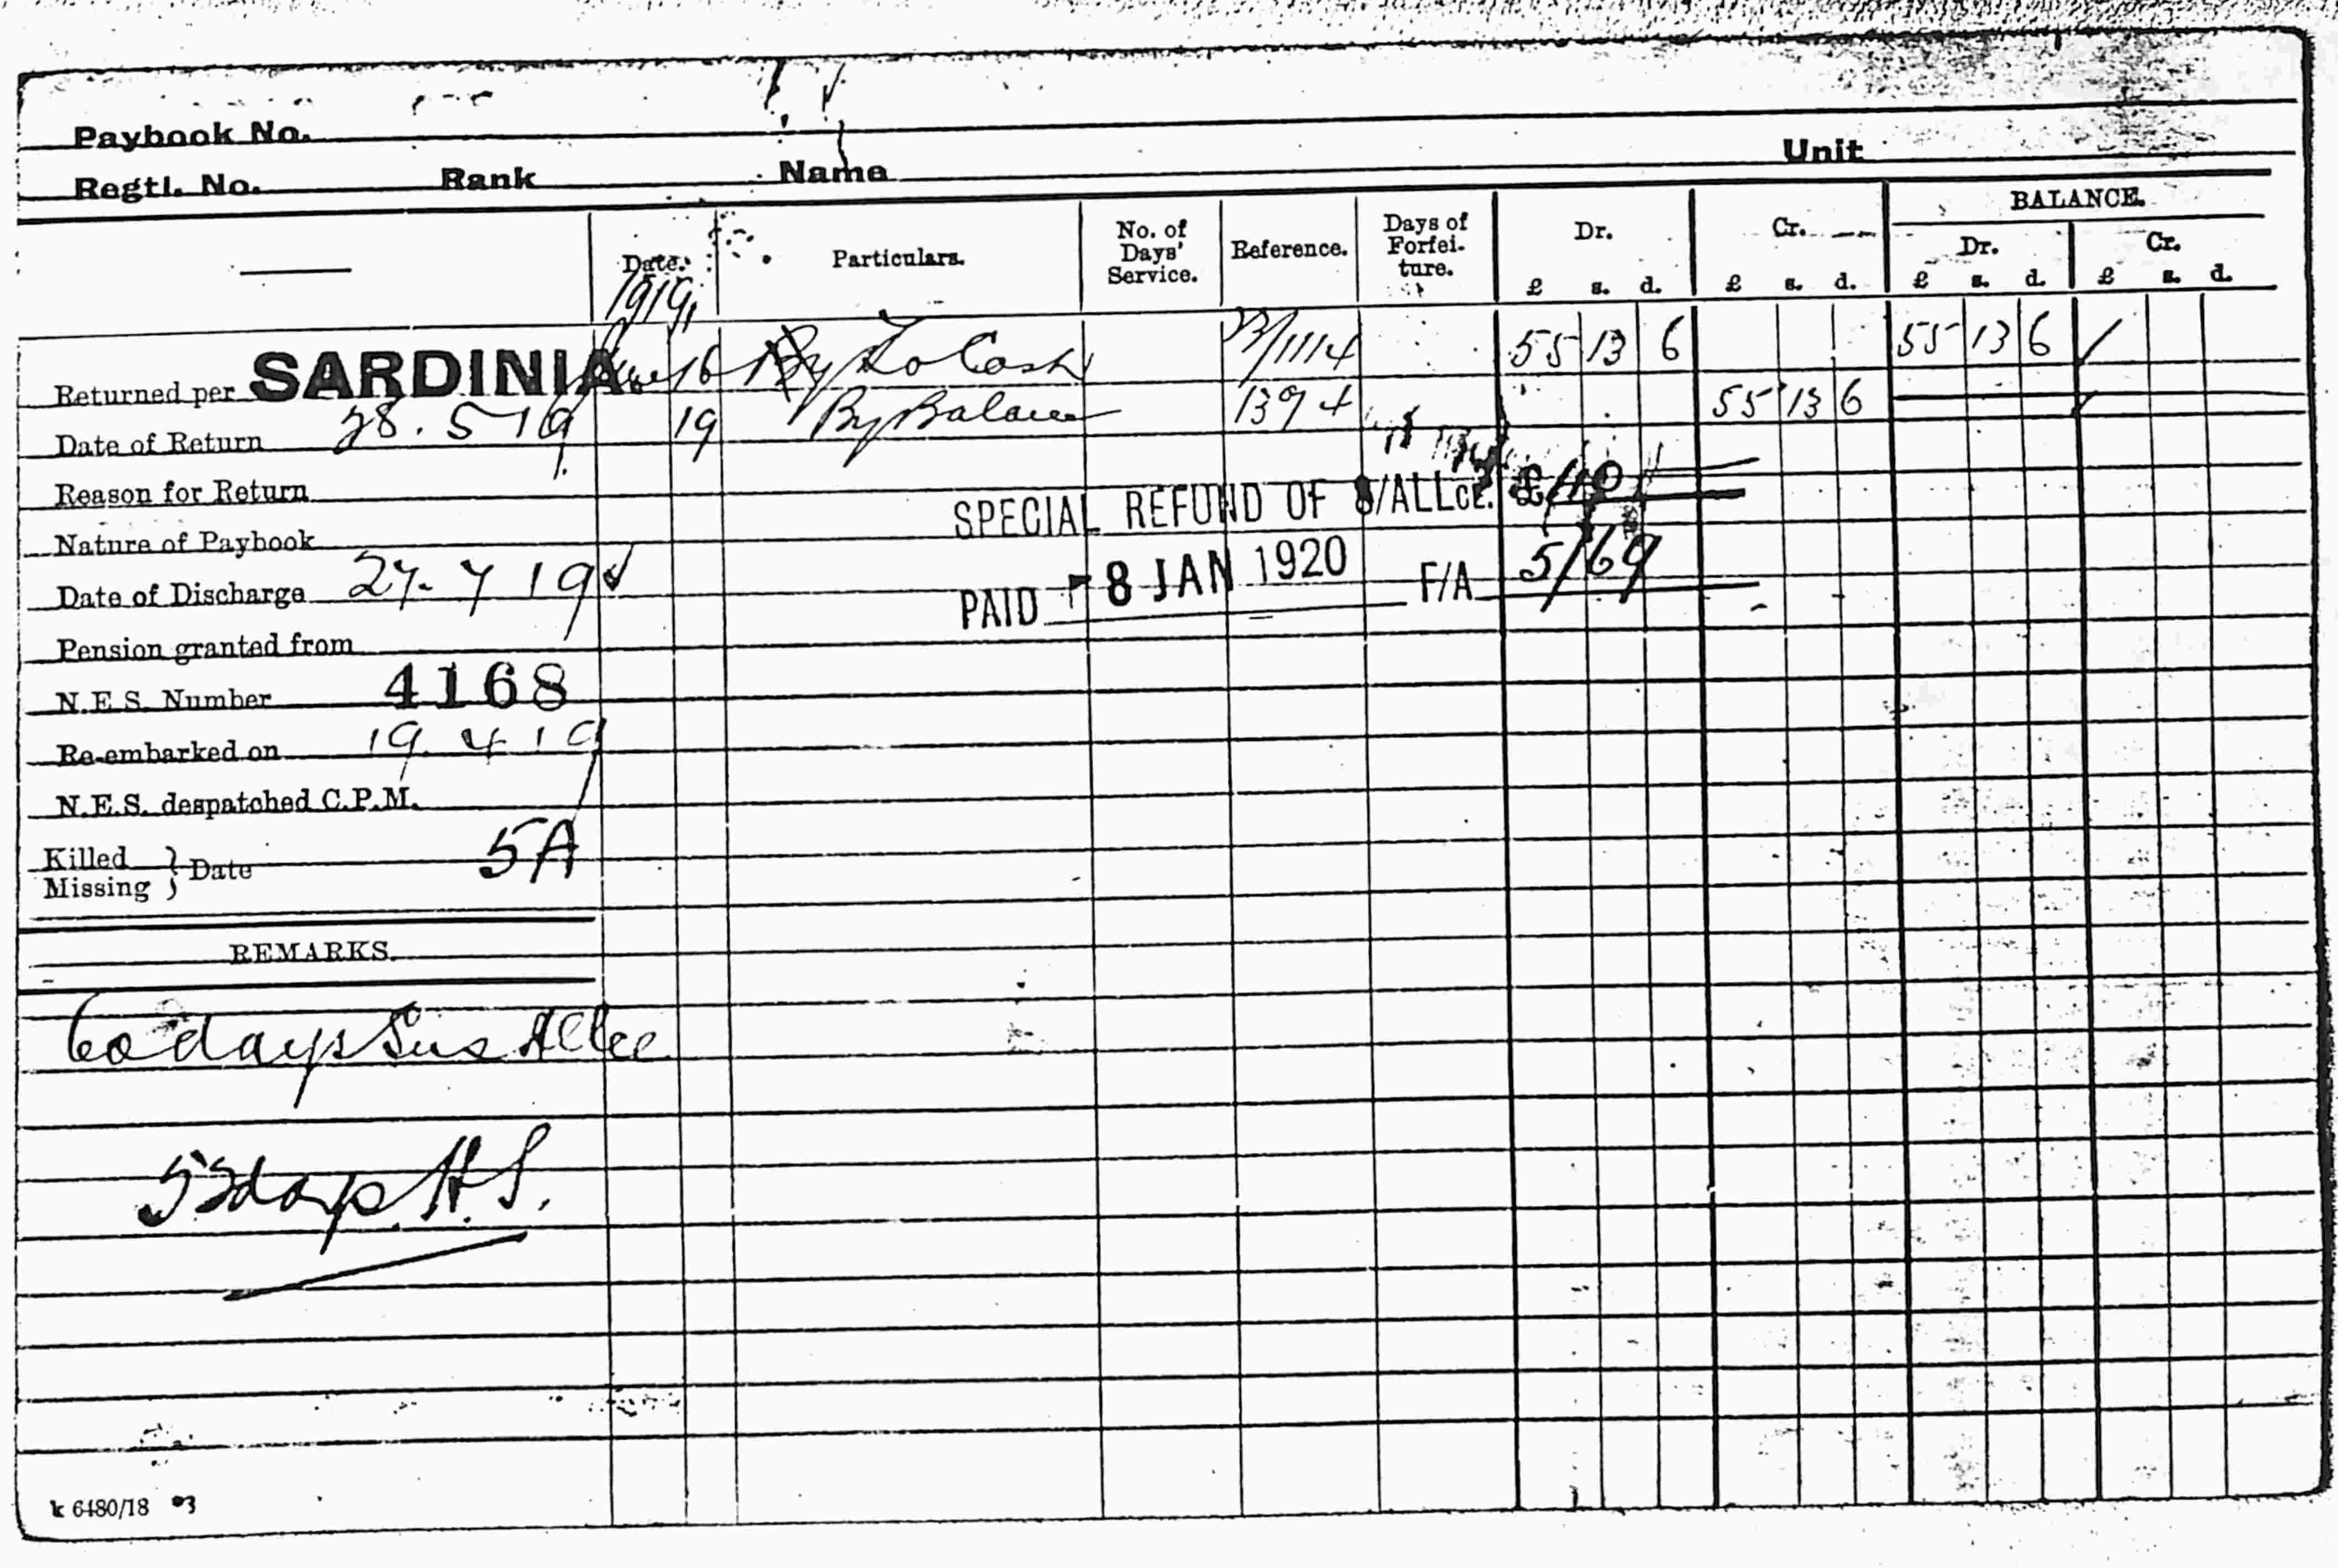 Paybook No.
Regtl. No. Rank Name Unit
Date. Particulars. No. of Days' Service. Reference. Days of Forfei-ture. Dr. Cr. BALANCE.
Dr. Cr.
£ s. d. £ s. d. £ s. d. £ s. d.
1919
Returned per SARDINIA June 16 By To Cash 55 13 6 55 13 6
Date of Return 28. 5 19 19 By Balance 1394 55 13 6
Reason for Return
SPECIAL REFUND OF S/ALLCE. £40
Nature of Paybook
Date of Discharge 27. 7 19
PAID - 8 JAN 1920 F/A 5/69
Pension granted from
N.E.S. Number 4168
Re-embarked on 19. 4 19
N.E.S. despatched C.P.M.
Killed
Missing } Date 5A
REMARKS.
60 days Sus Allce
53 days H.S.
k 6480/18